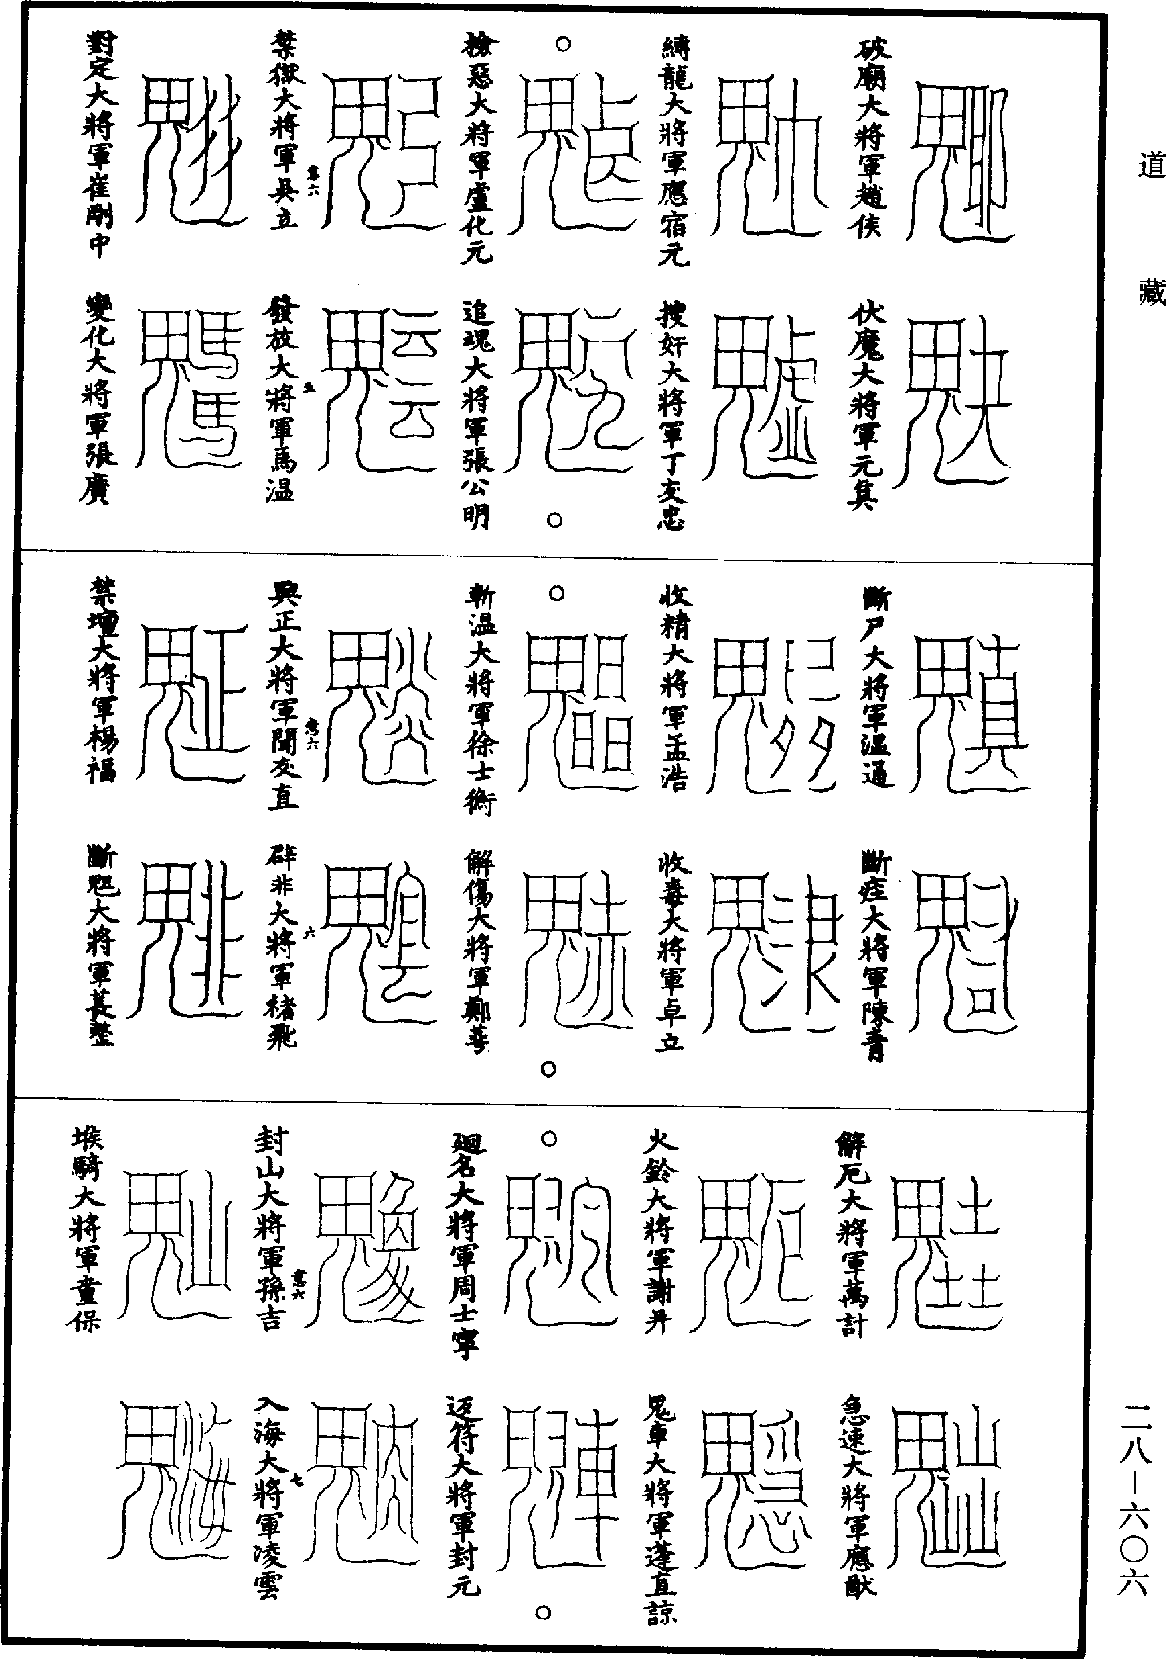 道藏
破廟大將軍趙侯
伏魔大將軍元真
縛龍大將軍應宿元
搜奸大將軍丁文忠
檢惡大將軍盧化元
追魂大將軍張公明
禁獄大將軍吳立
發放大將軍馬温
對定大將軍崔剛中
變化大將軍張廣
斷尸大將軍温通
斷疰大將軍陳青
收精大將軍孟浩
收毒大將軍卓立
斬温大將軍徐士衡
解傷大將軍鄭華
興正大將軍聞文直
辟非大將軍緒飛
禁壇大將軍楊福
斷䰟大將軍萇
解厄大將軍萬計
急速大將軍應猷
火鈴大將軍謝昇
鬼車大將軍蓬直諒
廻名大將軍周士寧
返符大將軍封元
封山大將軍孫吉
入海大將軍凌雲
堠騎大將軍童保
二八—六〇六